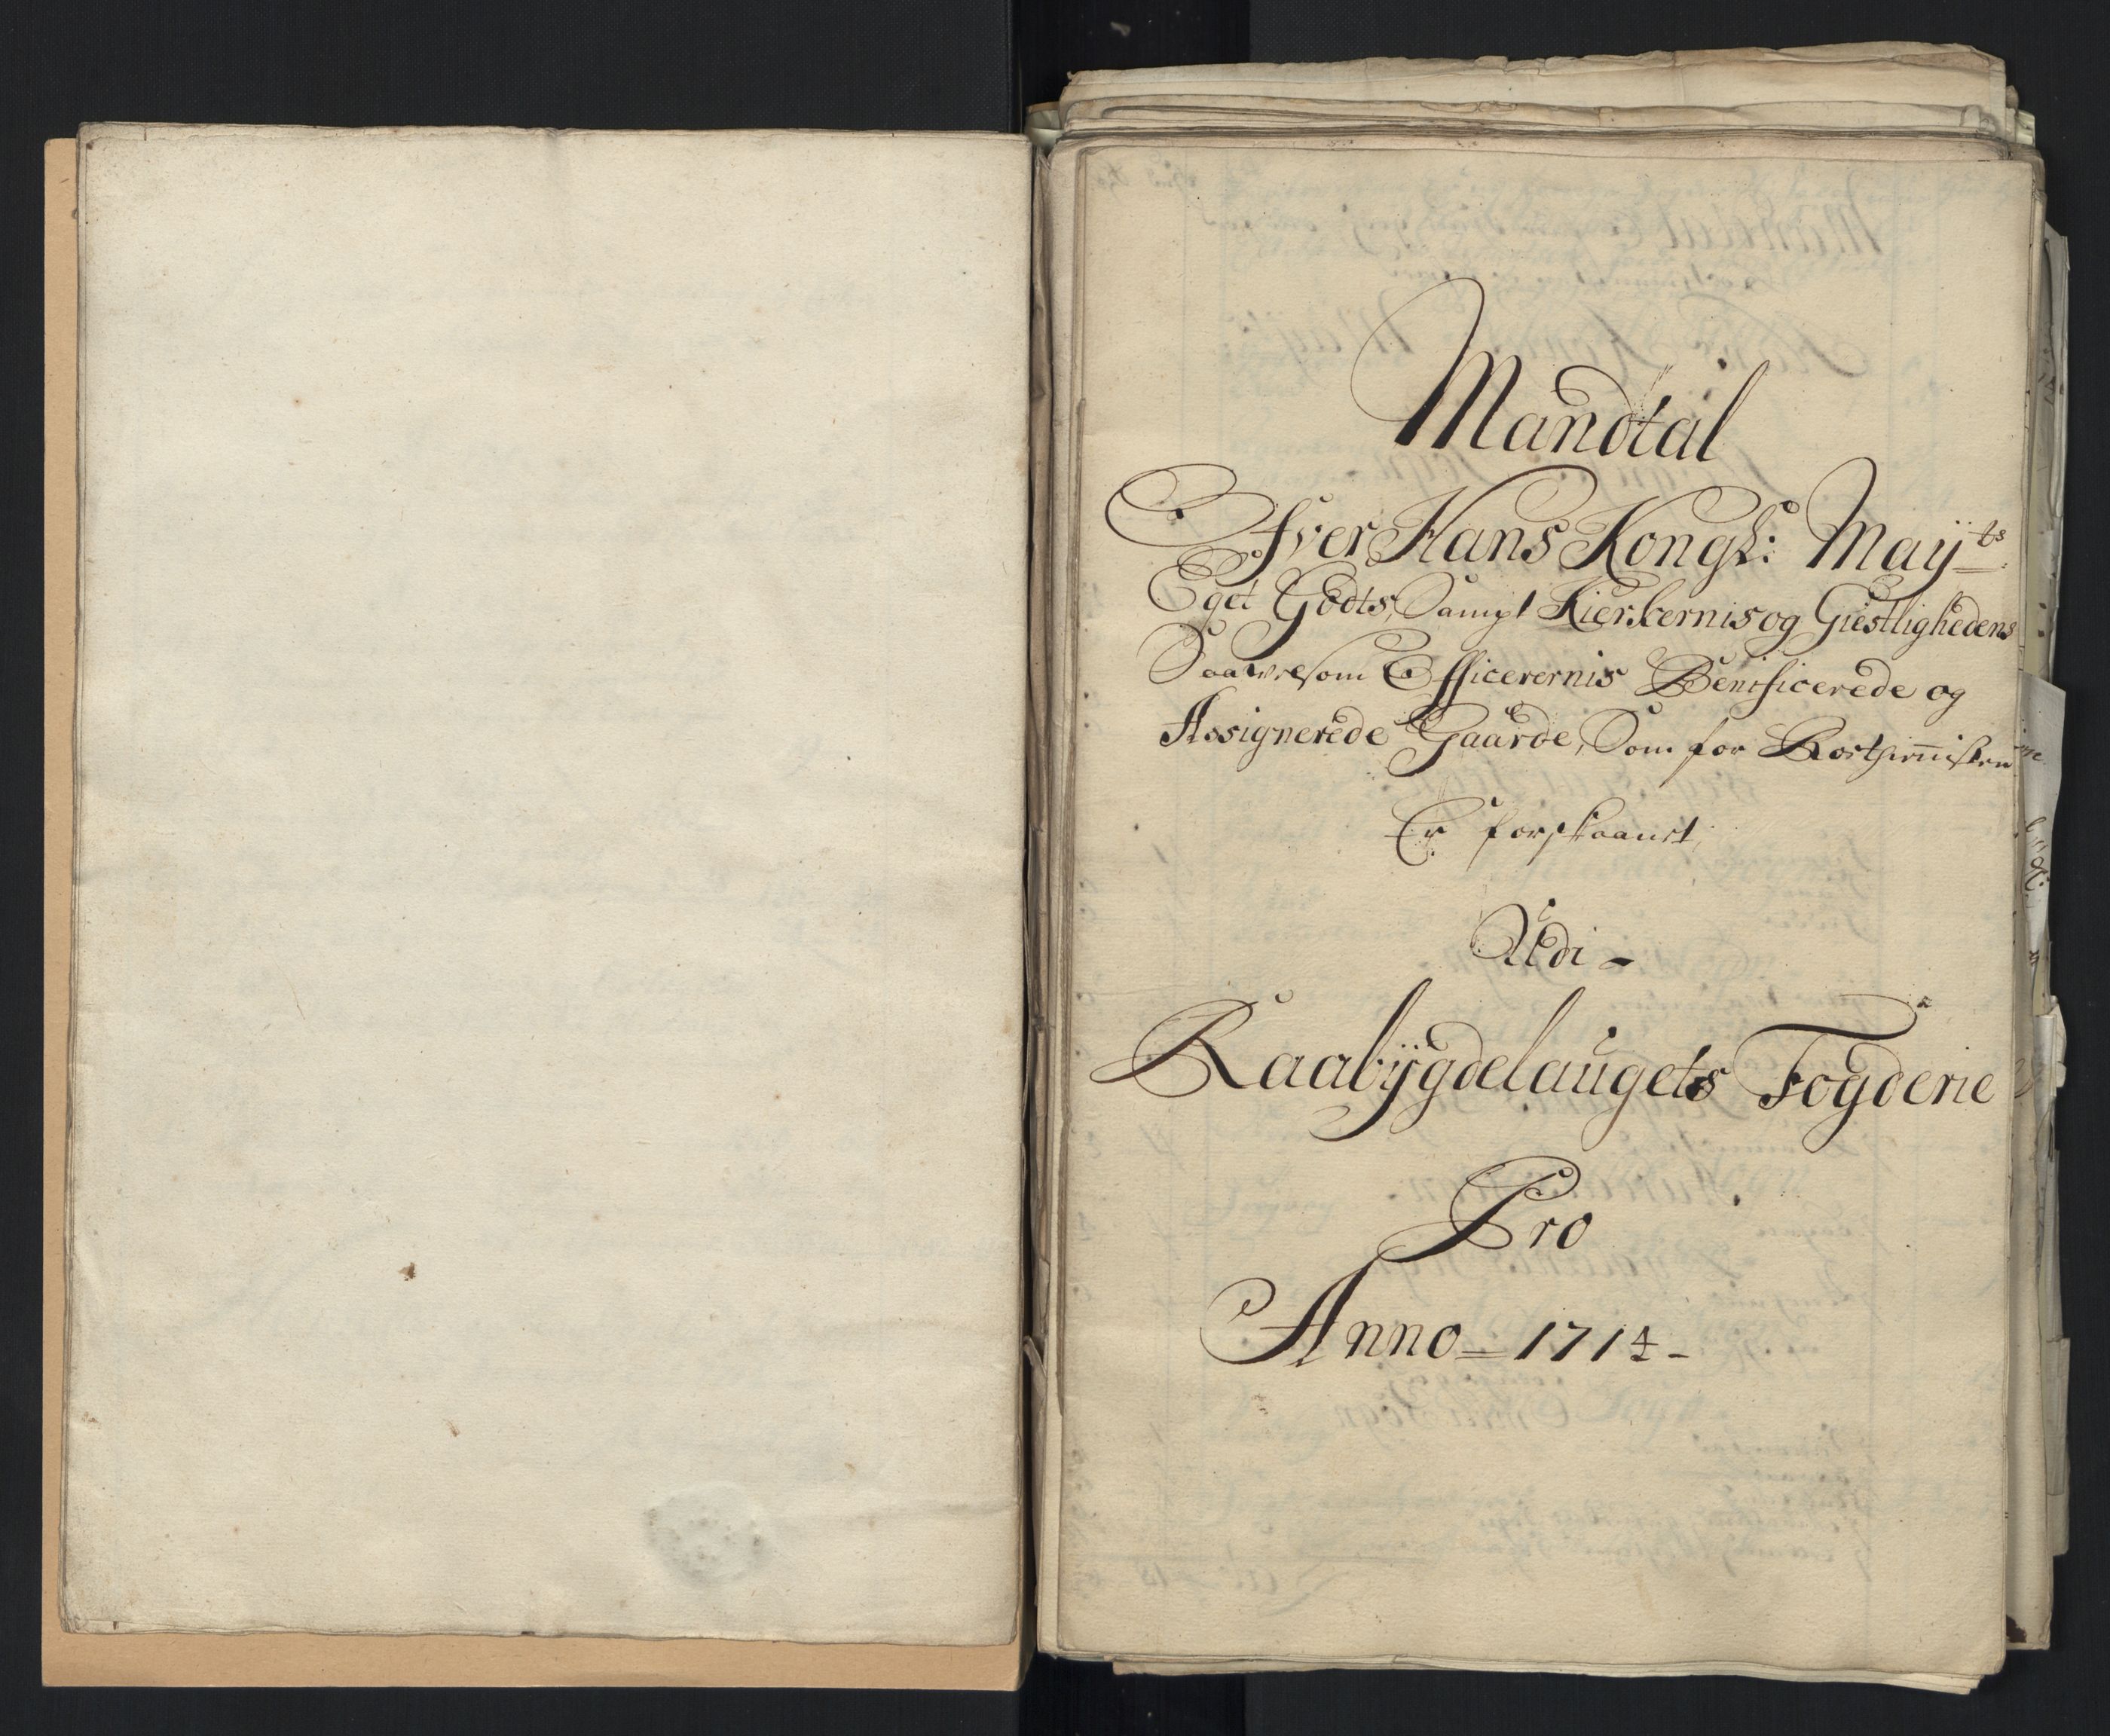 Mandtal
Ofver Hans Kongl: Mayts
Eget Godts, Sampt Kierkernis og Giestlighedens
Saavelsom Officerernis Beneficerede og
Assignerede Gaarde, Som for Rosthienisten
Er forskaanet,
Udi -
Raabÿgdelaugets Fogderie
Pro
Anno = 1714 -